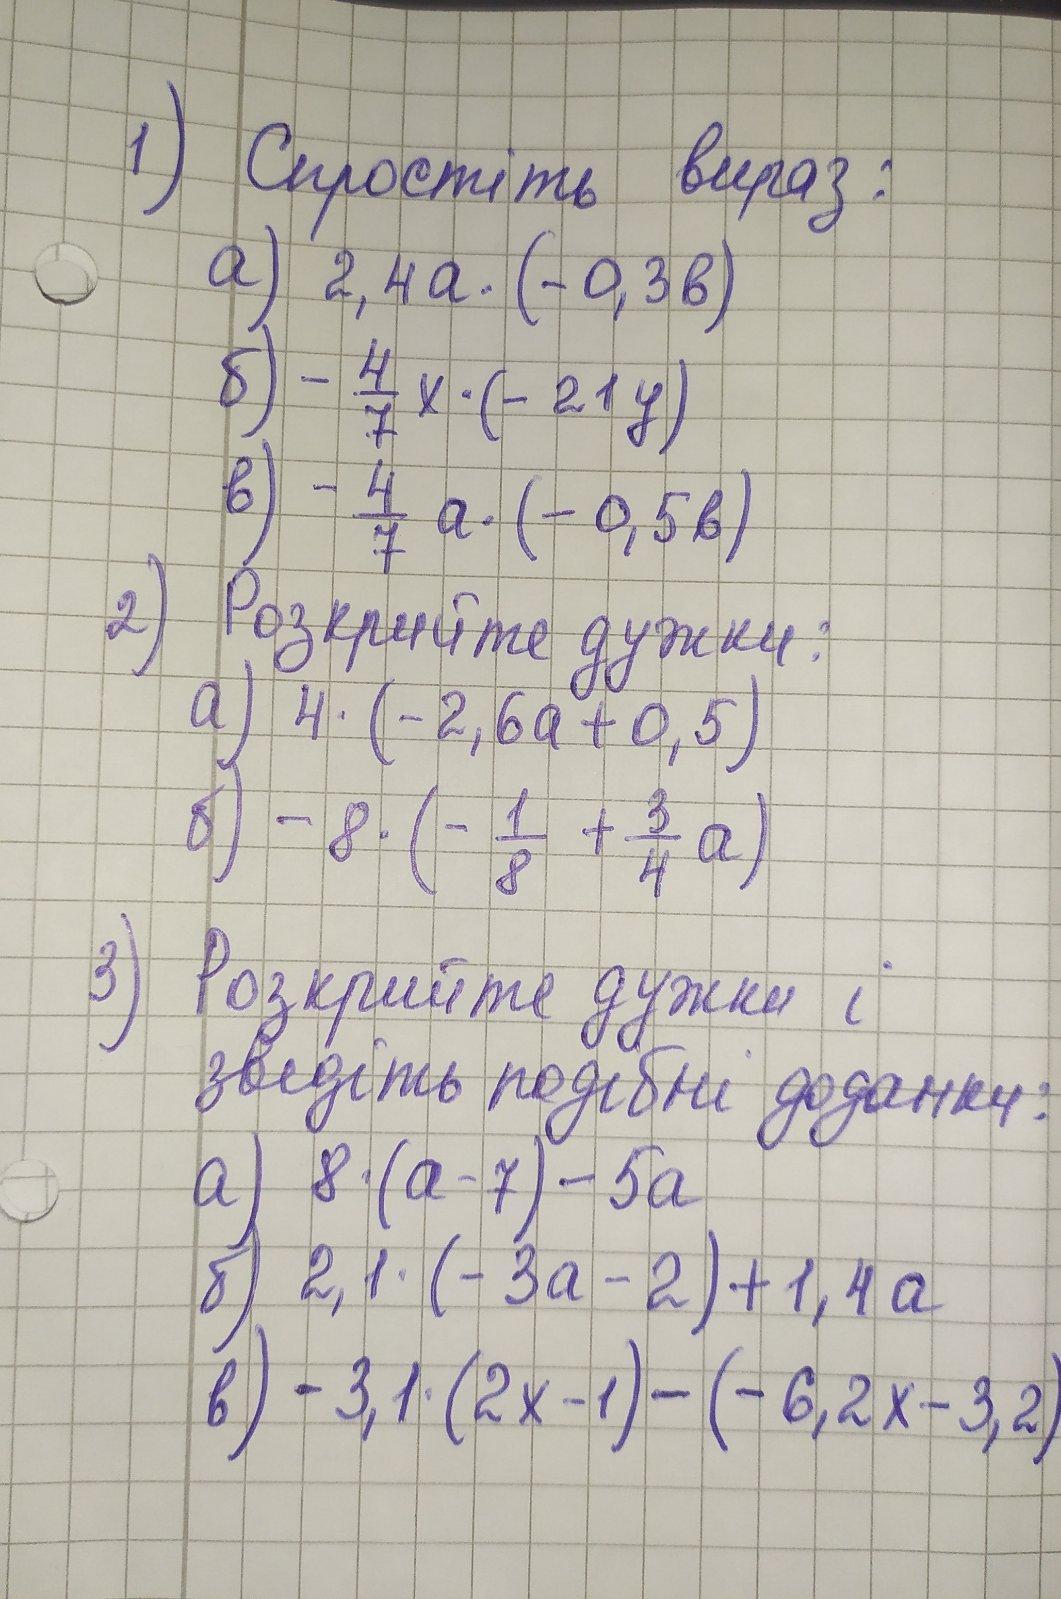 1) Спростіть вираз:
а) 2,4а·(-0,3в)
б) - 4/7 х·(- 21у)
в) - 4/7 а·(- 0,5в)
2) Розкрийте дужки:
а) 4·(-2,6а+0,5)
б) - 8·(- 1/8 + 3/4 а)
3) Розкрийте дужки і
зведіть подібні доданки:
а) 8·(а-7)-5а
б) 2,1·(-3а-2)+1,4а
в) -3,1·(2х-1)-(-6,2х-3,2)